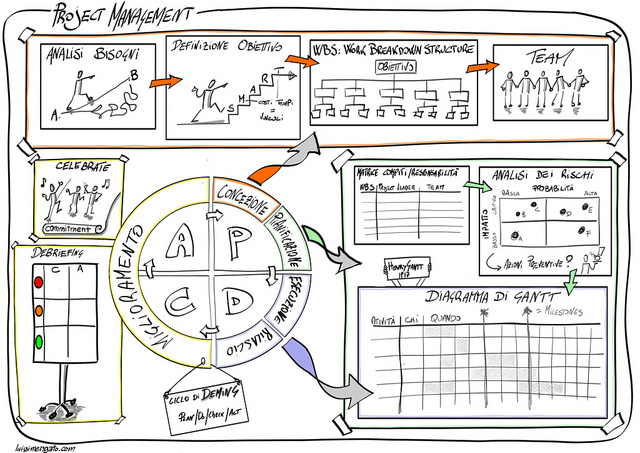 PROJECT MANAGEMENT
ANALISI BISOGNI
A
B
DEFINIZIONE OBIETTIVO
S
M
A
R
T
COSTI TEMPI
=
VINCOLI
WBS: WORK BREAKDOWN STRUCTURE
OBIETTIVO
TEAM
CELEBRATE
Commitment
DEBRIEFING
C A
MIGLIORAMENTO
CONCEZIONE
PIANIFICAZIONE
ESECUZIONE
RILASCIO
A P
C D
CICLO DI DEMING
PLAN/DO/CHECK/ACT
MATRICE COMPITI/RESPONSABILITÀ
WBS PROJECT LEADER TEAM
ANALISI DEI RISCHI
PROBABILITÀ
BASSA ALTA
IMPATTO
BASSO
A
B
C
D
E
F
AZIONI PREVENTIVE?
HENRY GANTT
1917
DIAGRAMMA DI GANTT
= MILESTONES
ATIVITÀ CHI QUANDO
luigimengato.com